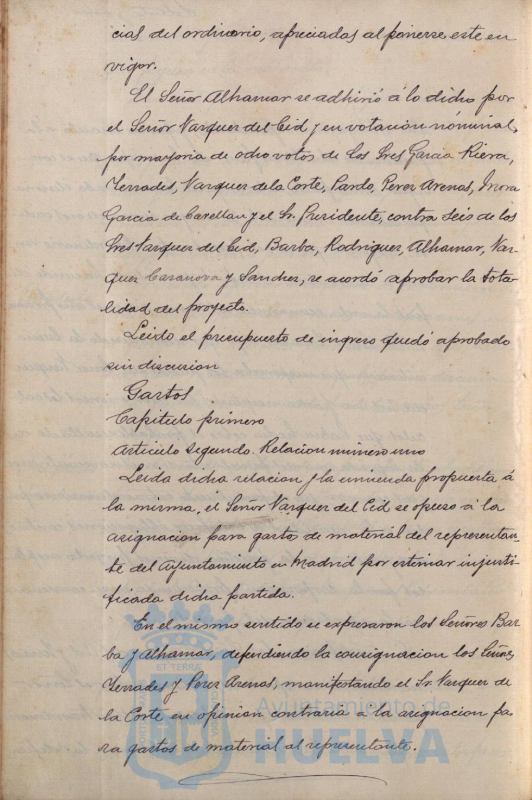 cial del ordinario, apreciadas al ponerse este en
vigor.
El Señor Alhamar se adhirió á lo dicho por
el Señor Vazquez del Cid y en votación nominal,
por mayoria de ocho votos de los Sres Garcia Riera,
Terrades, Vazquez de la Corte, Pardo, Perez Arenas, Mora
Garcia de Carellan y el Sr. Presidente, contra seis de los
Sres Vazquez del Cid, Barba, Rodriguez, Alhamar, Vaz-
quez Casanova y Sanchez, se acordó aprobar la tota-
lidad del proyecto.
Leido el presupuesto de ingreso quedó aprobado
sin discusion
Gastos
Capitulo primero
Articulo segundo. Relacion número uno
Leida dicha relacion y la enmienda propuesta á
la misma, el Señor Vazquez del Cid se opuso á la
asignacion para gastos de material del representan-
te del Ayuntamiento en Madrid por estimar injusti-
ficada dicha partida.
En el mismo sentido se expresaron los Señores Bar-
ba y Alhamar, defendiendo la consignacion los Señores
Terrades y Perez Arenas, manifestando el Sr. Vazquez de
la Corte su opinion contraria a la asignacion pa-
ra gastos de material al representante.
Ayuntamiento de
HUELVA